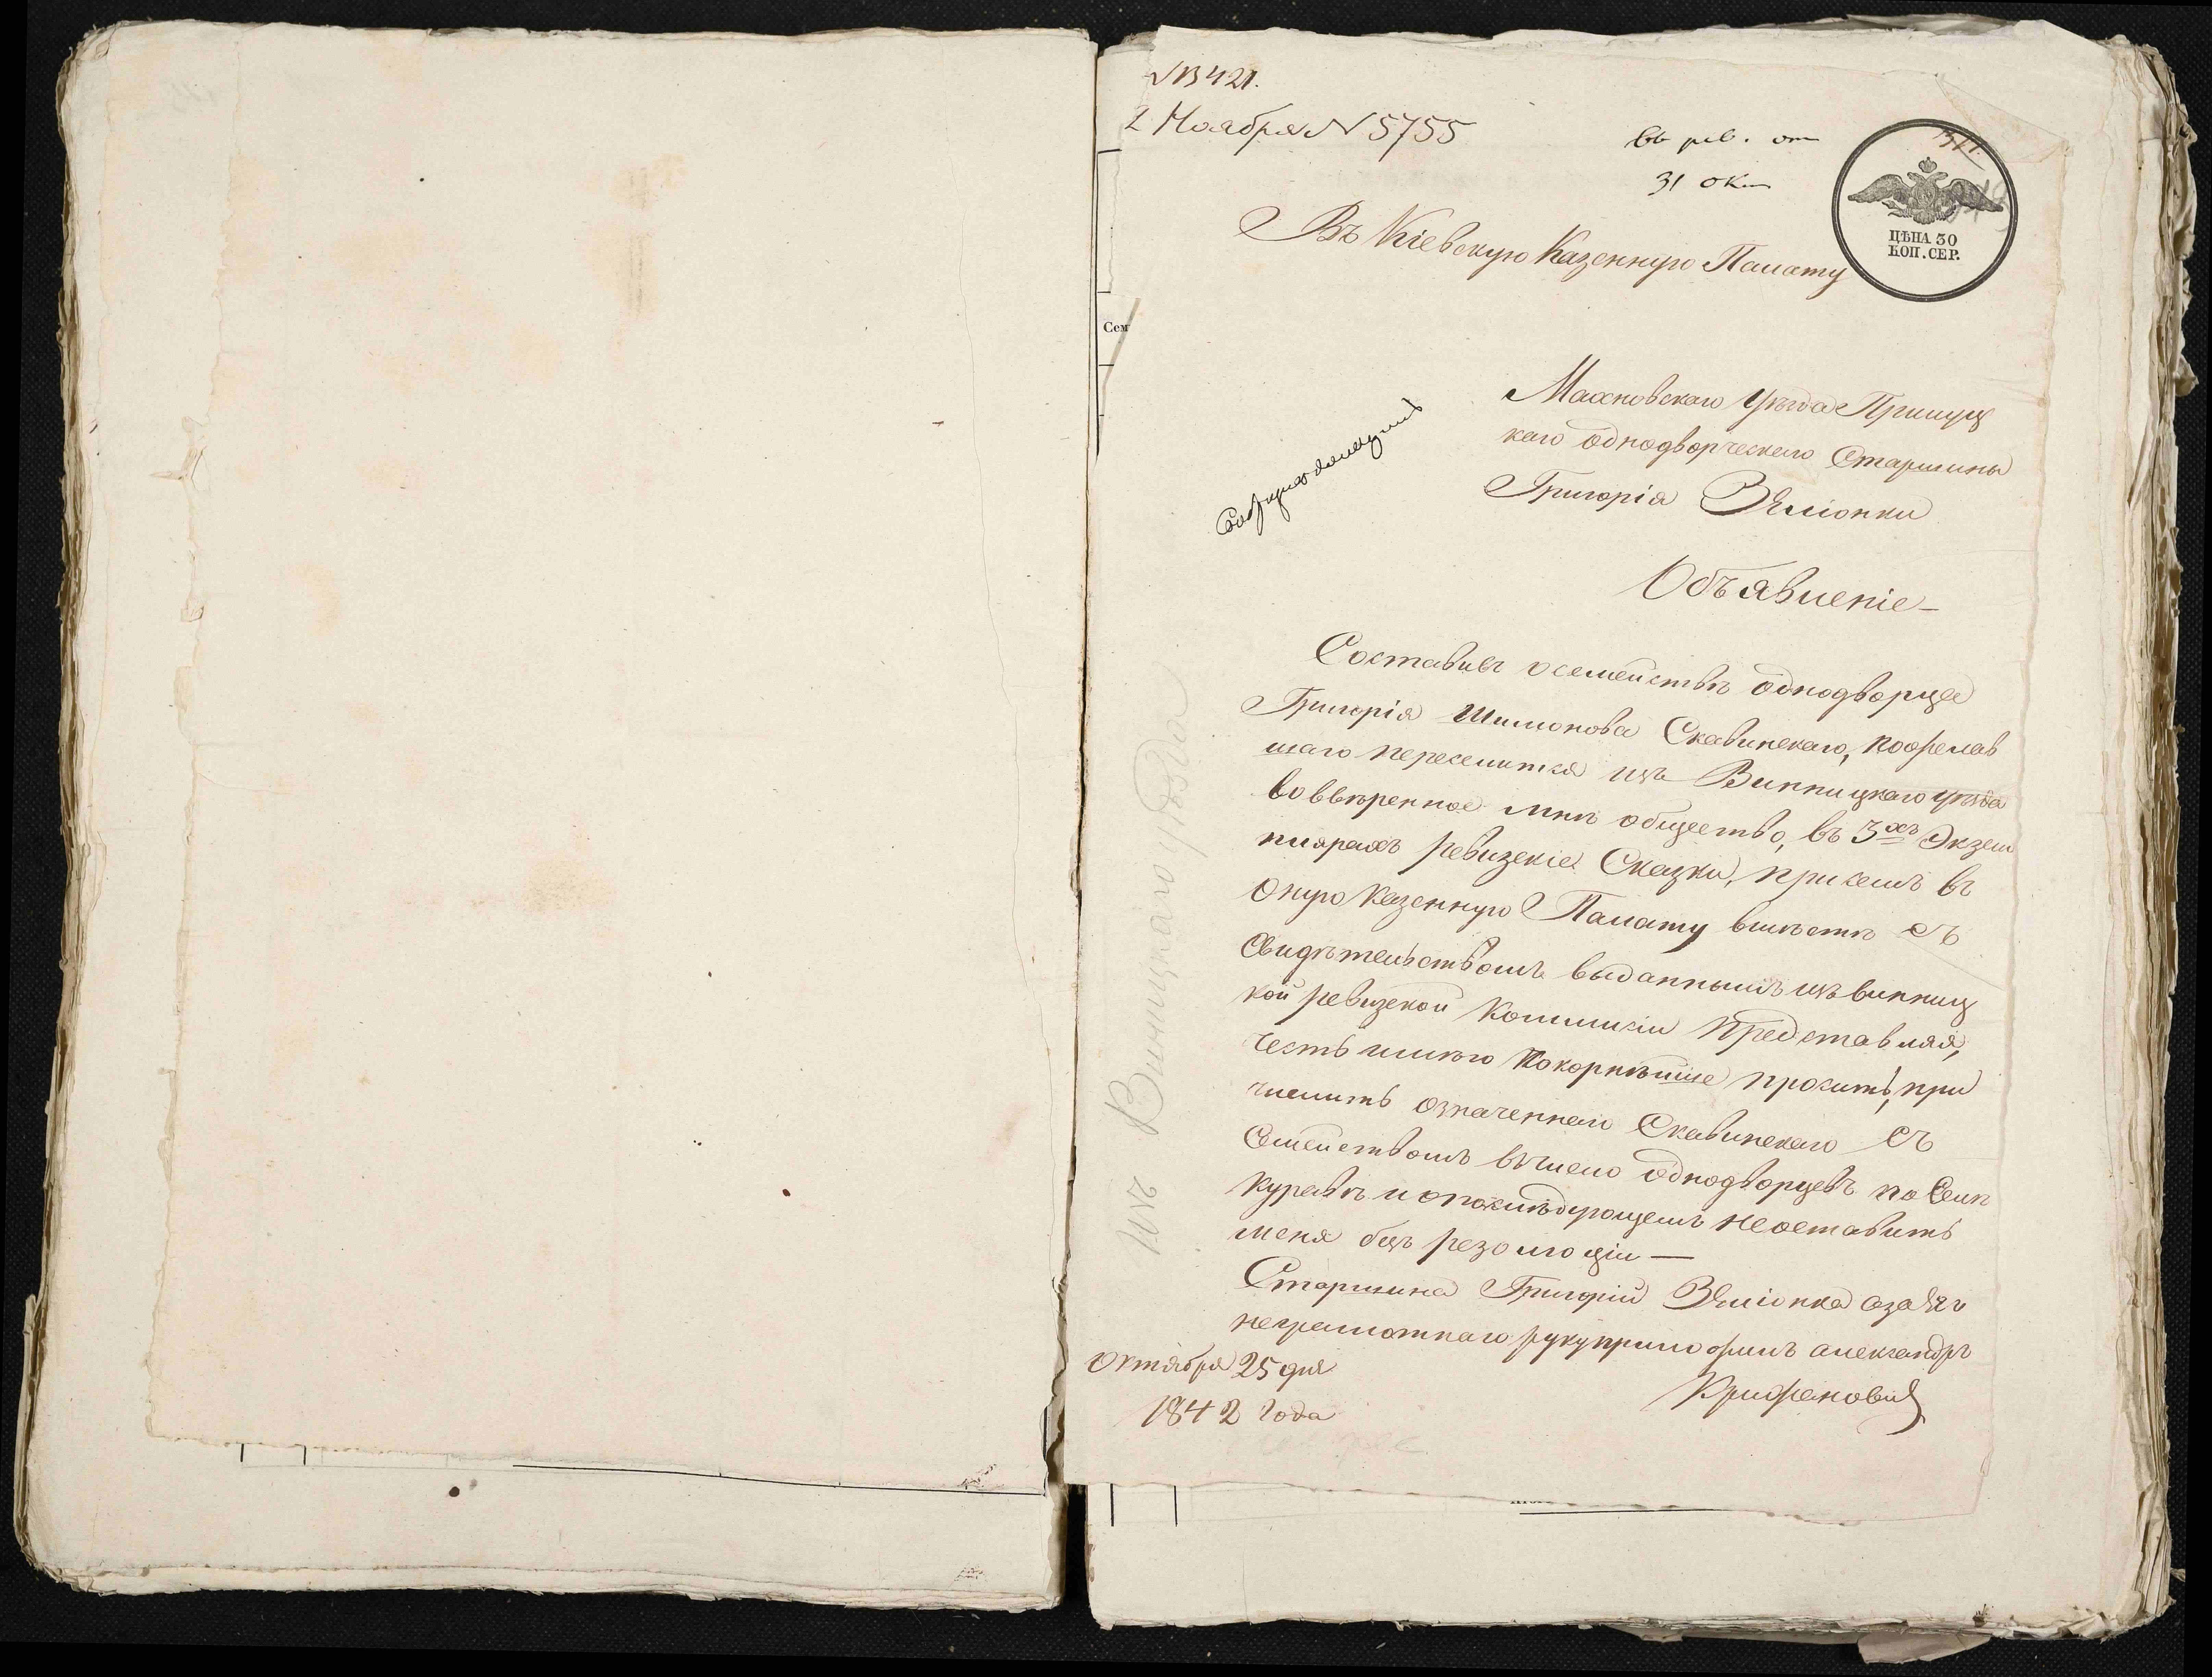 № 13421.
2 Ноября № 5755
въ рев. от
31 окт
ЦѢНА 30
КОП. СЕР.
Въ Кіевскую Казенную Палату
Сем
Махновскаго Уѣзда Прилуц
каго однодворческаго Старшины
Григорія
Объявленіе
Составивъ о семействѣ однодворца
Григорія Шимонова Скавинскаго, пожелав
шаго переселится изъ Винницкаго уѣзда
во ввѣренное мнѣ общество, въ 3хъ Экзем
плярахъ ревизскіе Сказки, при семъ въ
оную Казенную Палату вмѣстѣ съ
Свидѣтельствомъ выданнымъ изъ винниц
кой ревизской Коммисіи представляя,
честь имѣю Покорнѣйше просить, при
числить означеннаго Скавинскаго съ
Семействомъ въ число однодворцевъ по Селѣ
Журавѣ и о послѣдующемъ не оставить
меня безъ резолюціи —
Старшина Григорій а за его
неграмотнаго руку приложилъ александръ
Крижановскій
Октября 25 дня
1842 года
Изъ Винницкаго уѣзда